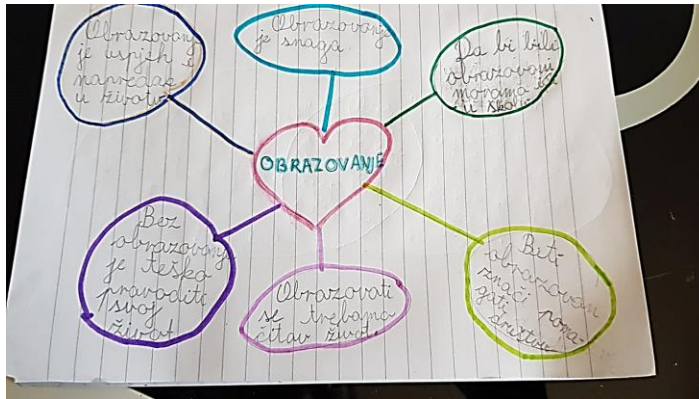 Obrazovanje
je uspjeh i
napredak
u životu
Obrazovanje
je snaga
Da bi bili
obrazovani
moramo ići
u školu
OBRAZOVANJE
Bez
obrazovanja
je teško
provoditi
svoj
život
Obrazovati
se trebamo
čitav život.
Biti
obrazovan
znači poma-
gati
društvu